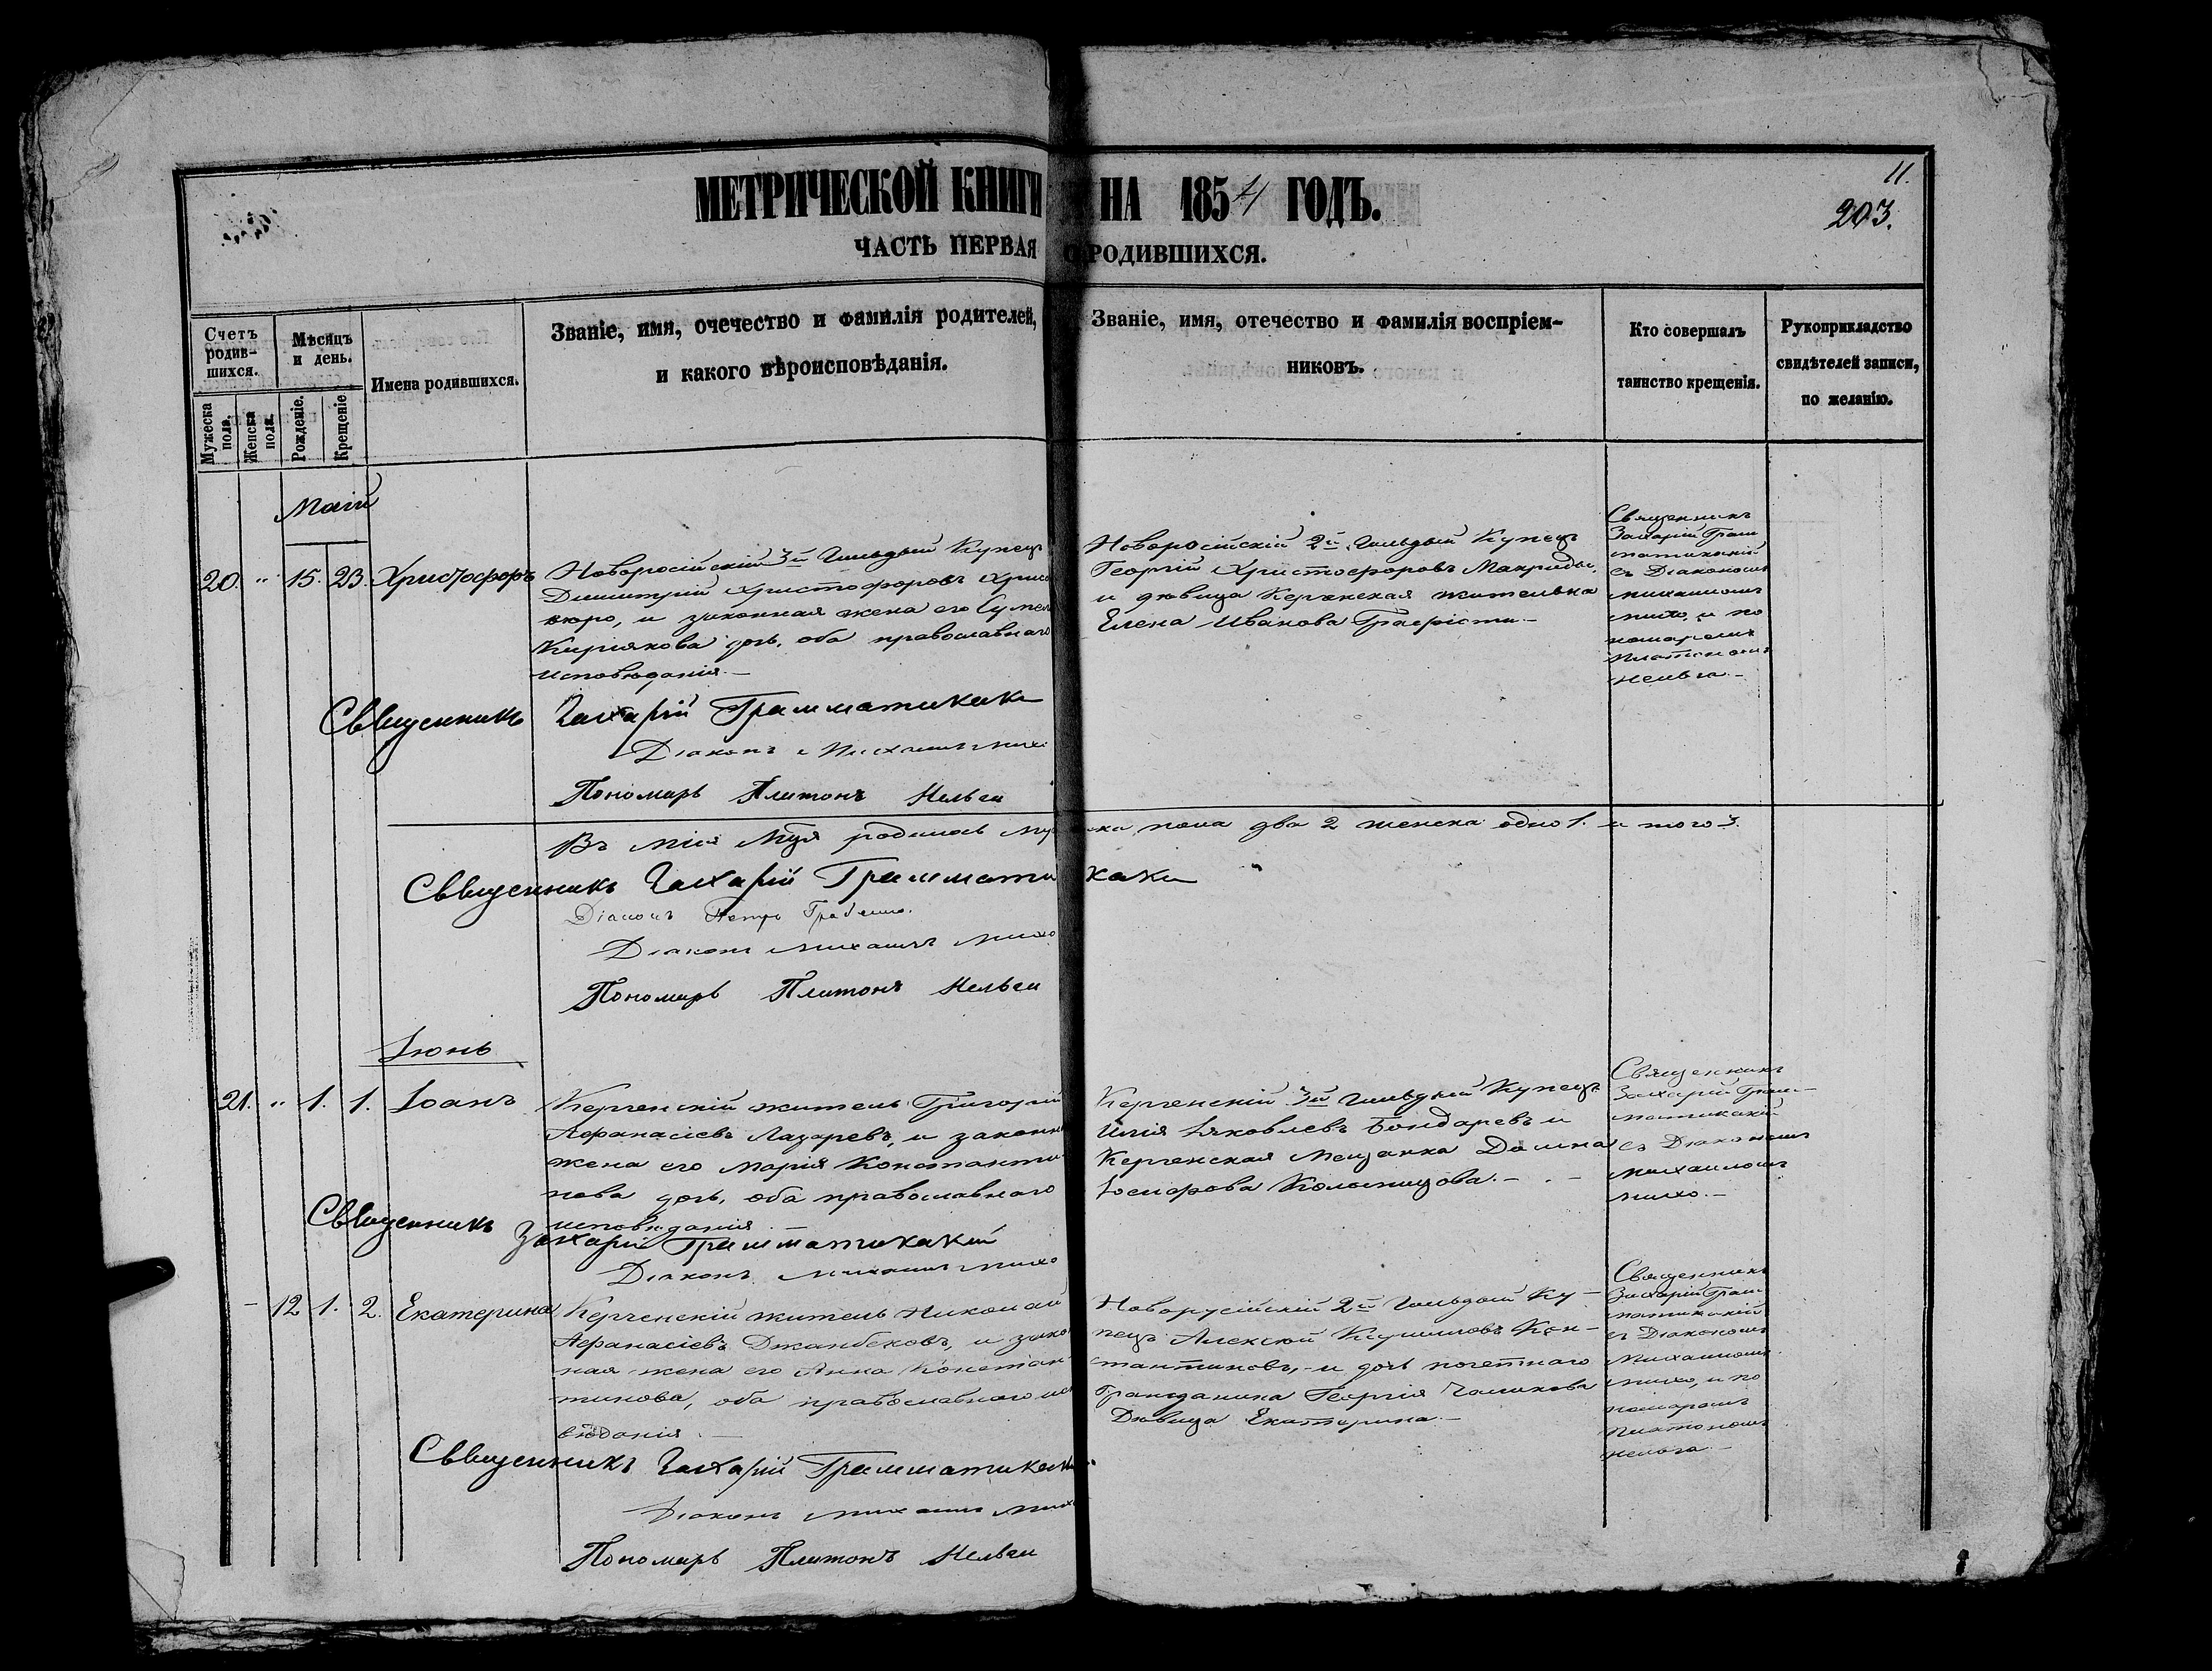 МЕТРИЧЕСКОЙ КНИГИ НА 1854 ГОДЪ.
11.
203.
ЧАСТЬ ПЕРВАЯ О РОДИВШИХСЯ.
Счетъ родив-
шихся.
Мужеска пола.
Женска пола.
Мѣсяцъ и день.
Рожденіе.
Крещеніе.
Имена родившихся.
Званіе, имя, очечество и фамилія родителей,
и какого вѣроисповѣданія.
Званіе, имя, отечество и фамилія воспріем-
никовъ.
Кто совершалъ
таинство крещенія.
Рукоприкладство
свидѣтелей записи,
по желанію.
Маій
20. " 15. 23. Христофоръ
Новоросійскій 3й Гильдыи Купецъ
Димитрій Христофоровъ
и законная жена его
Кирiякова дочь, оба православнаго
исповѣданія.—
Новоросійскій 2й Гильдыи Купецъ
Георгій Христофоровъ Макриди,
и дѣвица Керченская жителька
Елена Иванова
Священникъ
Захарій Грам
матикакій
съ Діакономъ
Михаиломъ
Михо, и по
номаремъ
Платономъ
Священникъ Захарій Грамматикаки
Діаконъ Михаилъ Михо
Пономарь Платонъ
Въ Маія родилось пола два 2 женска одно 1. и того 3.
Священникъ Захарій Грамматикаки
Діаконъ Петръ
Діаконъ Михаилъ Михо
Пономарь Платонъ
Іюнь
21. " 1. 1. Іоанъ
Керченскій житель Григорій
Афанасіевъ Лазаревъ, и законн
жена его Марія Константи
нова дочь, оба православнаго
исповѣданія.—
Керченскій 3й Гильдыи Купецъ
Илія Яковлевъ Бондаревъ и
Керченская Мещанка Домна
Священникъ
Захарій Грам-
матикакій
съ Діакономъ
Михаиломъ
Михо.—
Священникъ
Захарій Грамматикакій
Діаконъ Михаилъ Михо
- 12 1. 2. Екатерина
Керченскій житель Николай
Афанасіевъ Джанбековъ, и зако
ная жена его Анна Констан
тинова, оба православнаго ис
вѣданія.—
Новорусійскій 2й Гильдыи Ку-
пецъ Алексѣй Кон-
стантиновъ, и дочь почетнаго
Гражданина Георгія
Дѣвица Екатерина.—
Священникъ
Захарій Грам
матикакій
съ Діакономъ
Михаиломъ
Михо, и по
номаромъ
Платономъ
Священникъ Захарій Грамматикаки
Діаконъ Михаилъ Михо
Пономарь Платонъ